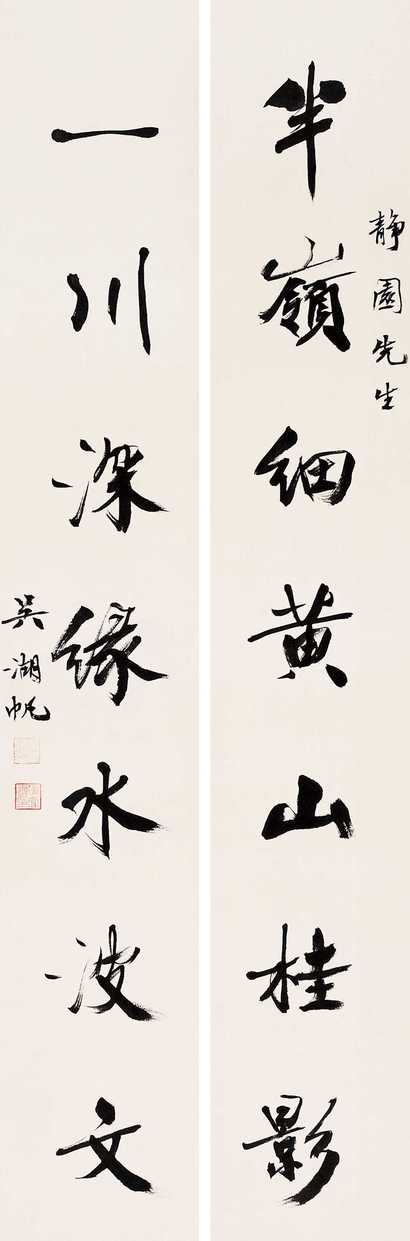 靜園先生
半嶺細黃山桂影
一川深緣水波文
吳湖帆